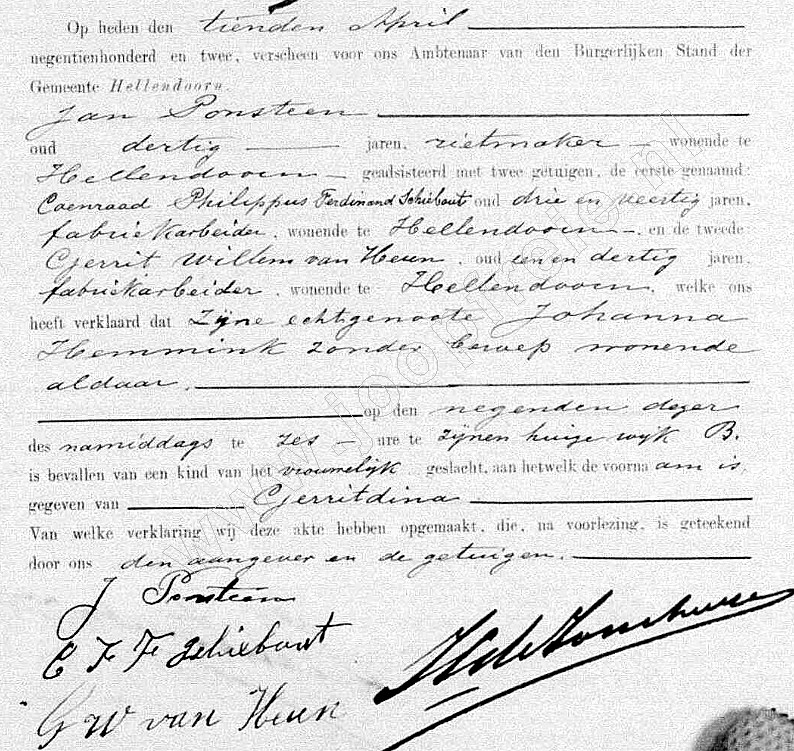 Op heden den tienden April
negentienhonderd en twee, verscheen voor ons Ambtenaar van den Burgerlijken Stand der
Gemeente Hellendoorn.
Jan Ponsteen
oud dertig jaren, rietmaker wonende te
Hellendoorn geadsisteerd met twee getuigen, de eerste genaamd:
Coenraad Philippus Ferdinand Schiebout oud drie en veertig jaren,
fabriekarbeider, wonende te Hellendoorn, en de tweede:
Gerrit Willem van Heun, oud een en dertig jaren,
fabriekarbeider, wonende te Hellendoorn, welke ons
heeft verklaard dat Zijne echtgenoote Johanna
Hemmink zonder beroep wonende
aldaar,
op den negenden dezer
des namiddags te zes ure te zijnen huize wijk B.
is bevallen van een kind van het vrouwelijk geslacht, aan hetwelk de voorna am is
gegeven van Gerritdina
Van welke verklaring wij deze akte hebben opgemaakt, die, na voorlezing, is geteekend
door ons den aangever en de getuigen.
J Ponsteen
C F F Schiebout
G W van Heun
www.joopfreie.nl